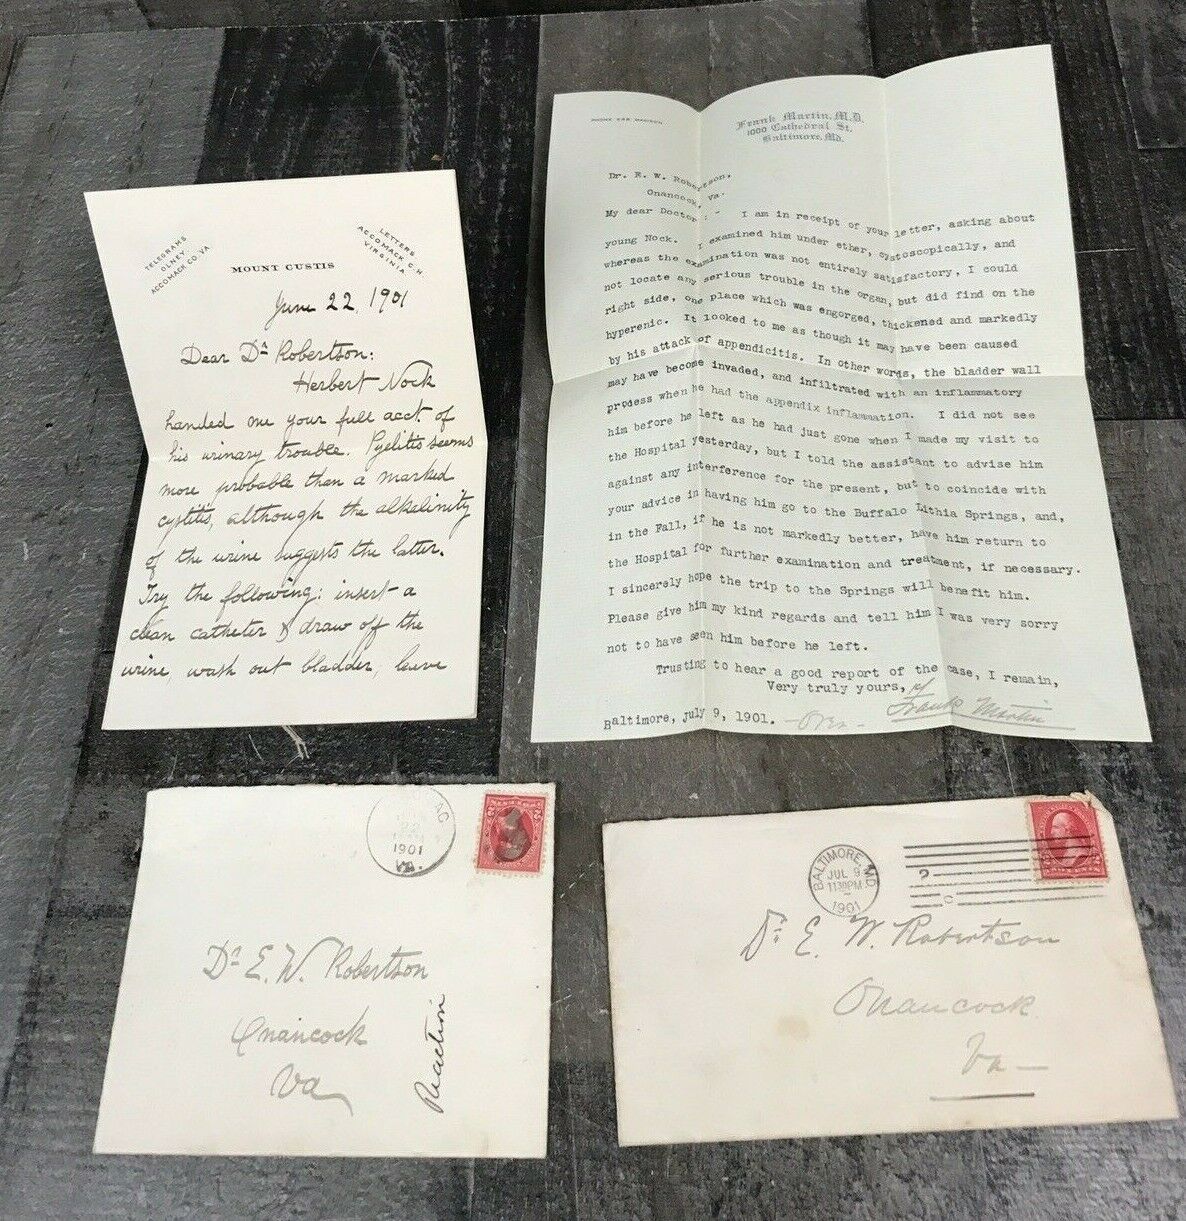 TELEGRAMS
OLNEY
ACCOMACK CO. VA
LETTERS
ACCOMACK C.H.
VIRGINIA
MOUNT CUSTIS
June 22, 1901
Dear Dr Robertson:
Herbert Nock
handed me your full acct. of
his urinary trouble. Pyelitis seems
more probable than a marked
cystitis, although the alkalinity
of the urine suggests the latter.
Try the following: insert a
clean catheter & draw off the
urine, wash out bladder, leave
Frank Martin, M.D.
1000 Cathedral St.
Baltimore, Md.
Dr. E. W. Robertson,
Onancock, Va.
My dear Doctor : - I am in receipt of your letter, asking about
young Nock. I examined him under ether, cystoscopically, and
whereas the examination was not entirely satisfactory, I could
not locate any serious trouble in the organ, but did find on the
right side, one place which was engorged, thickened and markedly
hyperenic. It looked to me as though it may have been caused
by his attack of appendicitis. In other words, the bladder wall
may have become invaded, and infiltrated with an inflammatory
process when he had the appendix inflammation. I did not see
him before he left as he had just gone when I made my visit to
the Hospital yesterday, but I told the assistant to advise him
against any interference for the present, but to coincide with
your advice in having him go to the Buffalo Lithia Springs, and,
in the Fall, if he is not markedly better, have him return to
the Hospital for further examination and treatment, if necessary.
I sincerely hope the trip to the Springs will benefit him.
Please give him my kind regards and tell him I was very sorry
not to have seen him before he left.
Trusting to hear a good report of the case, I remain,
Very truly yours,
Frank Martin
Baltimore, July 9, 1901. -Over-
22
1901
VA.
Dr E. W. Robertson
Onancock
Va
Reaction
BALTIMORE, MD.
JUL 9
1130PM
1901
Dr. E. W. Robertson
Onancock
Va -